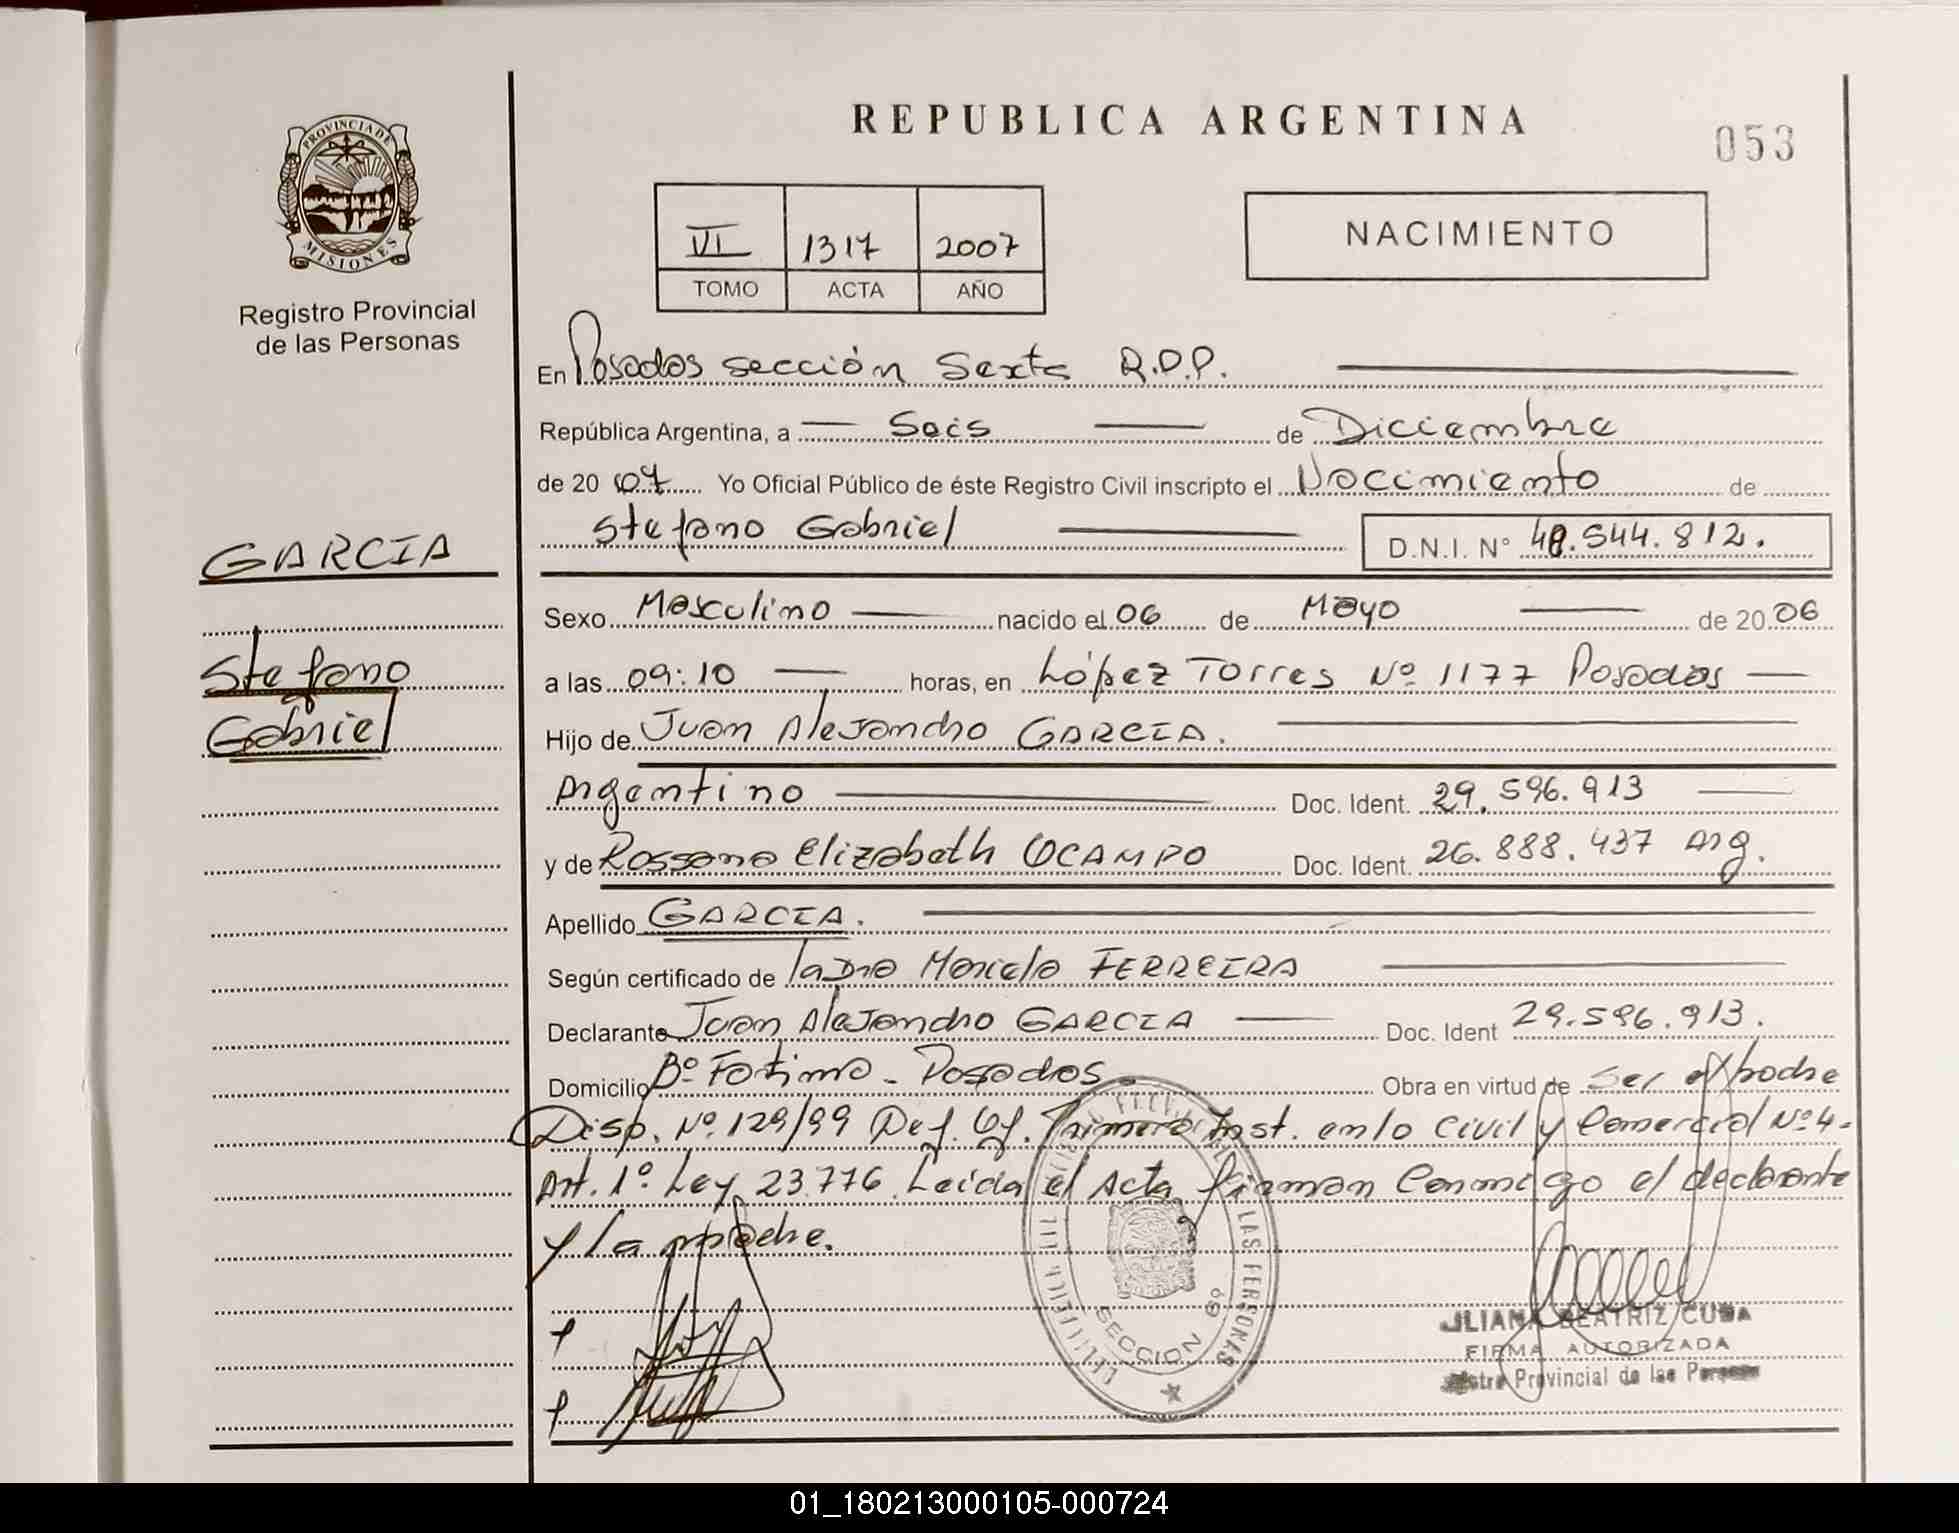 PROVINCIA DE
MISIONES
Registro Provincial
de las Personas
GARCIA
Stefano
Gabriel
REPUBLICA ARGENTINA
053
VI 1317 2007
TOMO ACTA AÑO
NACIMIENTO
En Posadas sección Sexta R.P.P.
República Argentina, a Seis de Diciembre
de 20 07 Yo Oficial Público de éste Registro Civil inscripto el Nacimiento de
Stefano Gabriel D.N.I. N° 48.544.812.
Sexo Masculino nacido el 06 de Mayo de 20 06
a las 09:10 horas, en López Torres Nº 1177 Posadas
Hijo de Juan Alejandro GARCIA.
Argentino Doc. Ident. 29.596.913
y de Rossana Elizabeth OCAMPO Doc. Ident. 26.888.437 Arg.
Apellido GARCIA.
Según certificado de Marcelo FERREIRA
Declarante Juan Alejandro GARCIA Doc. Ident 29.596.913.
Domicilio Bº Fatima - Posadas. Obra en virtud de Ser el padre
Disp. Nº 129/99 Def. Of. Primera Inst. en lo Civil y Comercial Nº 4.
Art. 1º Ley 23.776. Leida el Acta firman conmigo el declarante
y la madre.
LAS PERSONAS
SECCION 6º
BEATRIZ CUBA
FIRMA AUTORIZADA
Provincial de las
01_180213000105-000724